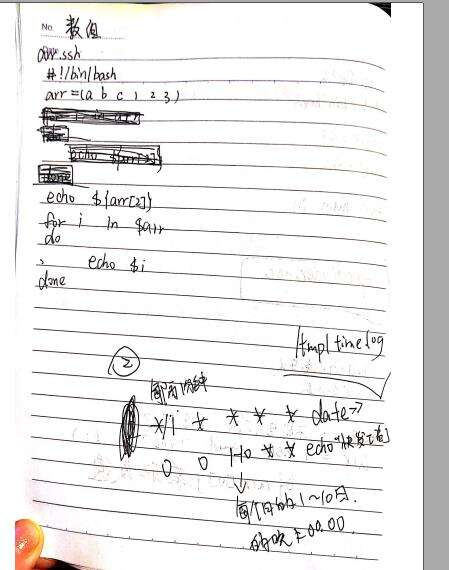 No. 数组
arr.ssh
#!/bin/bash
arr=(a b c 1 2 3)
echo ${arr[2]}
echo ${arr[2]}
for i in $arr
do
echo $i
done
/tmp/timelog
②
每两分钟
*/1 * * * * date >>
0 0 1-10 * * echo "快发工资"
↓
每个月的1~10日
的晚上00.00